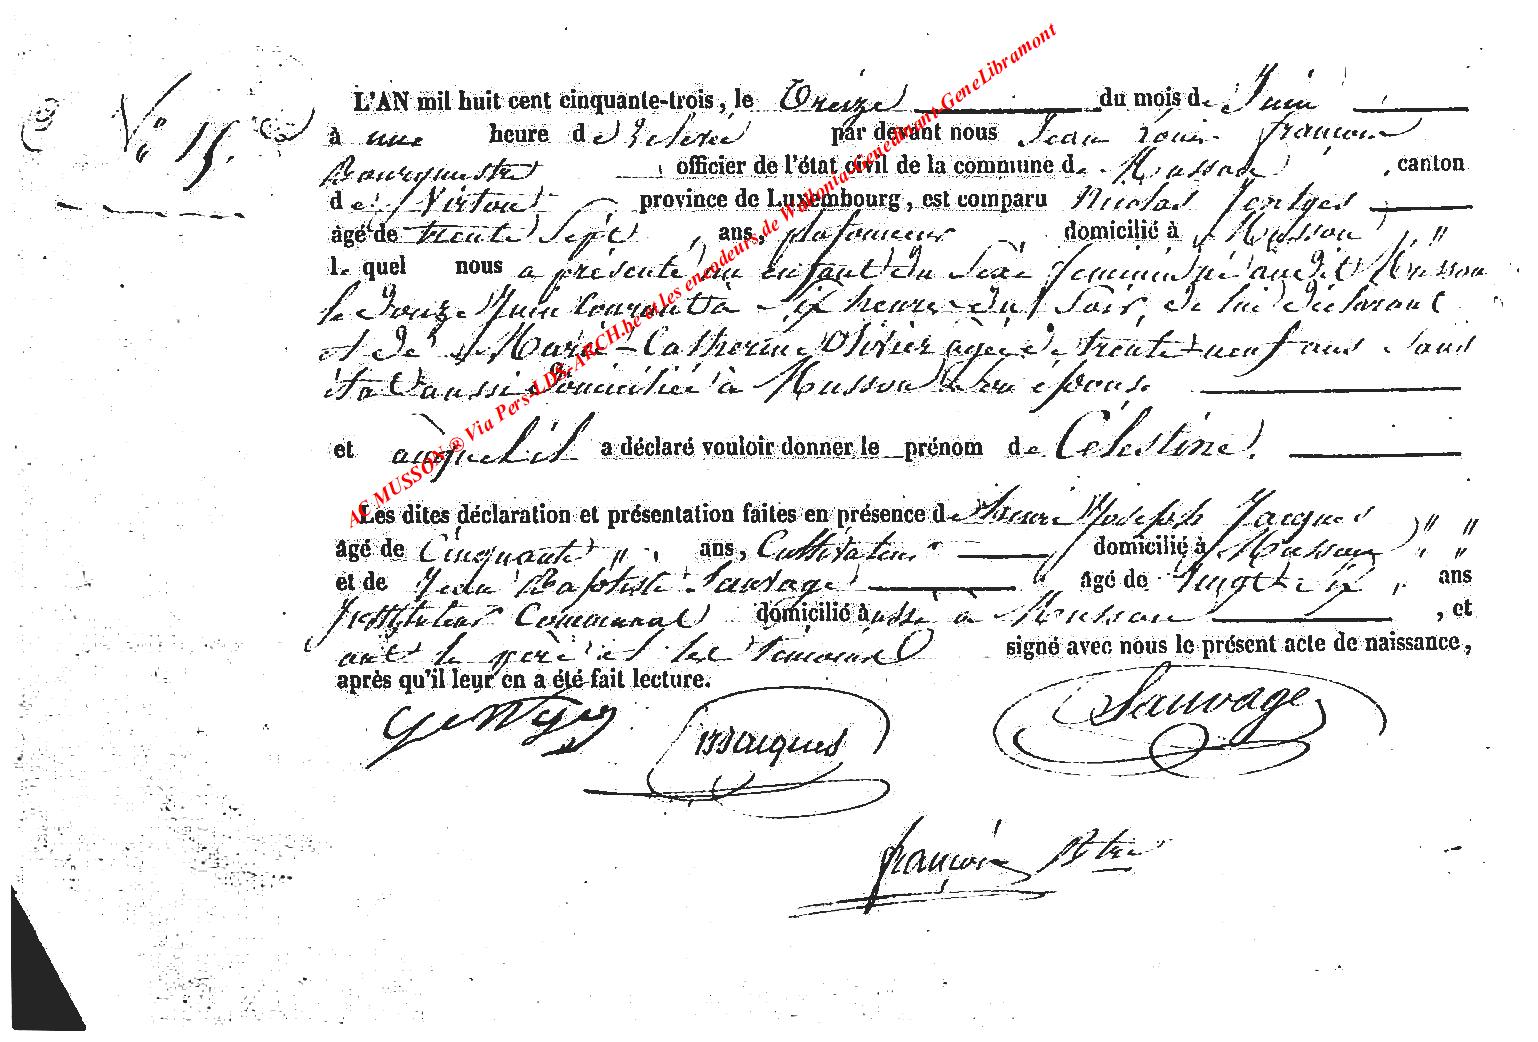 N° 15.
L'AN mil huit cent cinquante-trois, le Treize du mois de Juin
à une heure de Relevée par devant nous Jean Louis françois
Bourgmestre officier de l'état civil de la commune de Musson, canton
de Virton province de Luxembourg, est comparu Nicolas Gentges
âgé de trente Sept ans, plafonneur domicilié à Musson "
le quel nous a présenté un enfant du Sexe feminin né audit Musson
le Douze Juin Courant à Six heures du Soir, de lui déclarant
et de Marie-Catherine Olivier agée de trente-neuf ans Sans
état aussi Domiciliée à Musson Son épouse
et auquel il a déclaré vouloir donner le prénom de Célestine.
Les dites déclaration et présentation faites en présence de henri Joseph Jacques " "
âgé de Cinquante " ans, Cultivateur domicilié à Musson " "
et de Jean Baptiste Sauvage âgé de Vingt Six, ans
Instituteur Communal domicilié aussi à Musson, et
ont le père et les témoins signé avec nous le présent acte de naissance,
après qu'il leur en a été fait lecture.
Gentges Jacques Sauvage
françois Btre
AC MUSSON ® Via Pers-LDX-ARCH.be et les encodeurs de Wallonia-Genealuant-GeneLibramont